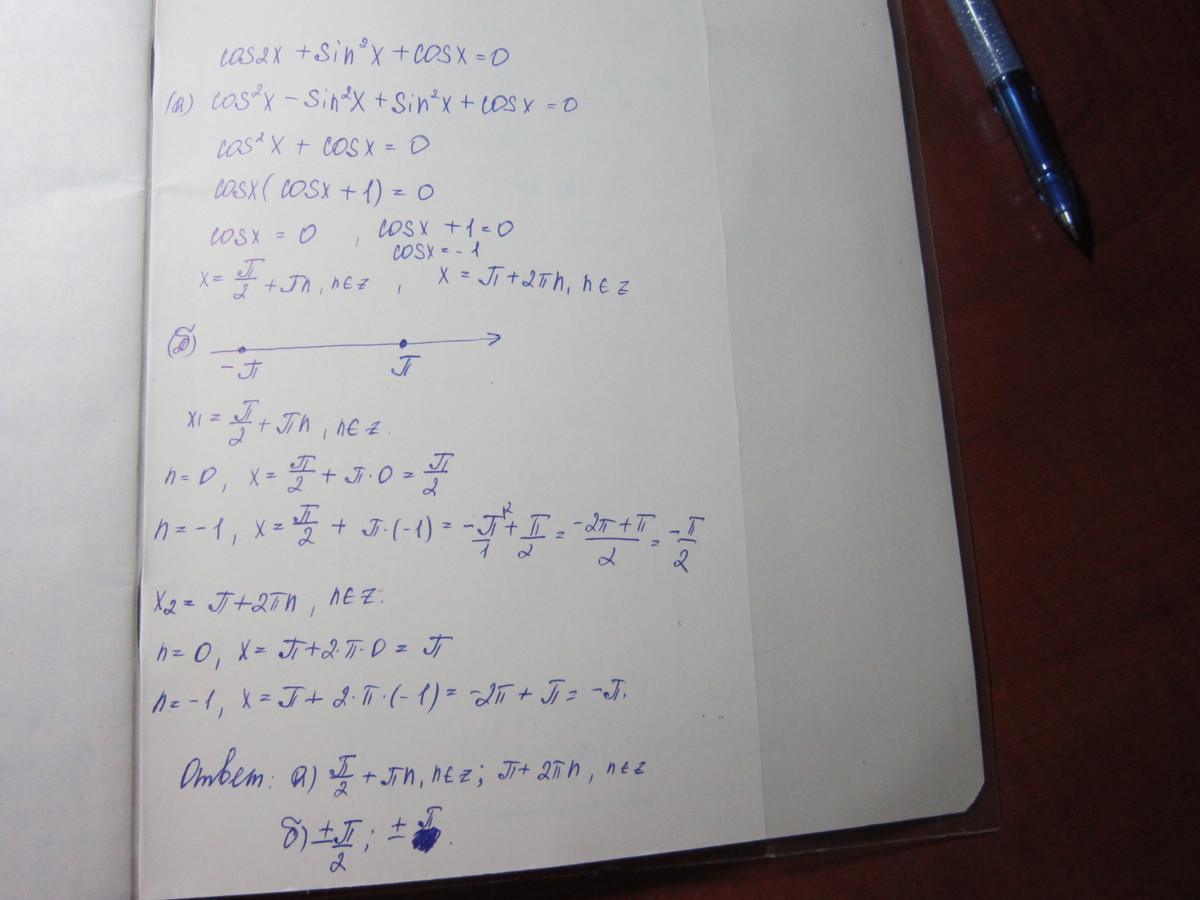 cos2x + sin²x + cosx = 0
(а) cos²x - sin²x + sin²x + cosx = 0
cos²x + cosx = 0
cosx(cosx + 1) = 0
cosx = 0 , cosx + 1 = 0
cosx = -1
x = π/2 + πn, n∈z , x = π + 2πn, n∈z
(б)
-π π
x₁ = π/2 + πn, n∈z.
n = 0, x = π/2 + π·0 = π/2
n = -1, x = π/2 + π·(-1) = -π/1 + π/2 = (-2π + π)/2 = -π/2
x₂ = π + 2πn, n∈z.
n = 0, x = π + 2·π·0 = π
n = -1, x = π + 2·π·(-1) = -2π + π = -π.
Ответ: а) π/2 + πn, n∈z; π + 2πn, n∈z
б) ±π/2; ±π.